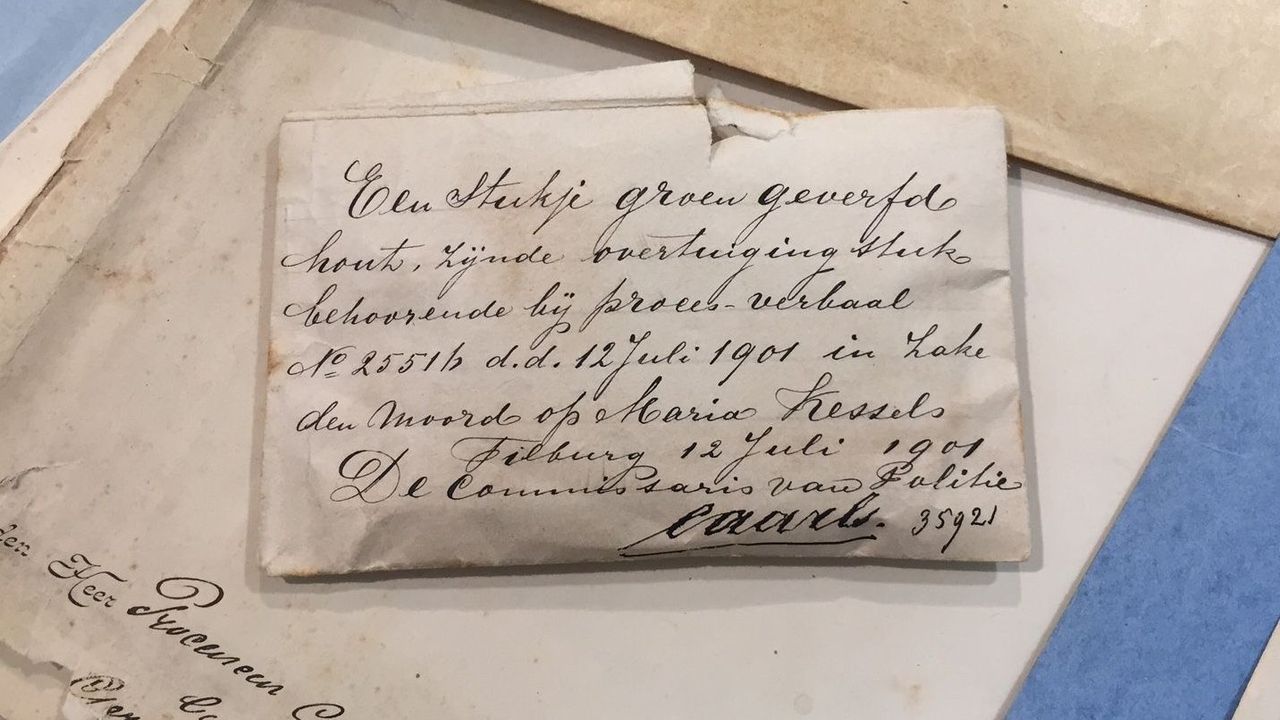 Een Stukje groen geverfd
hout, zijnde overtuiging stuk
behoorende bij proces-verbaal
No 2551b d.d. 12 Juli 1901 in zake
den moord op Maria Kessels
Tilburg 12 Juli 1901
De Commissaris van Politie
Caarls. 35921
den Heer